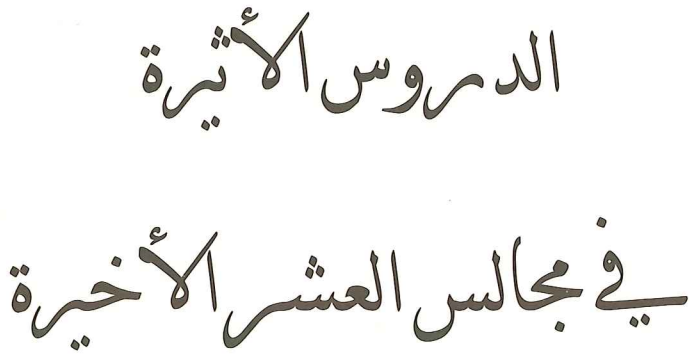 الدروس الأثيرة
في مجالس العشر الأخيرة